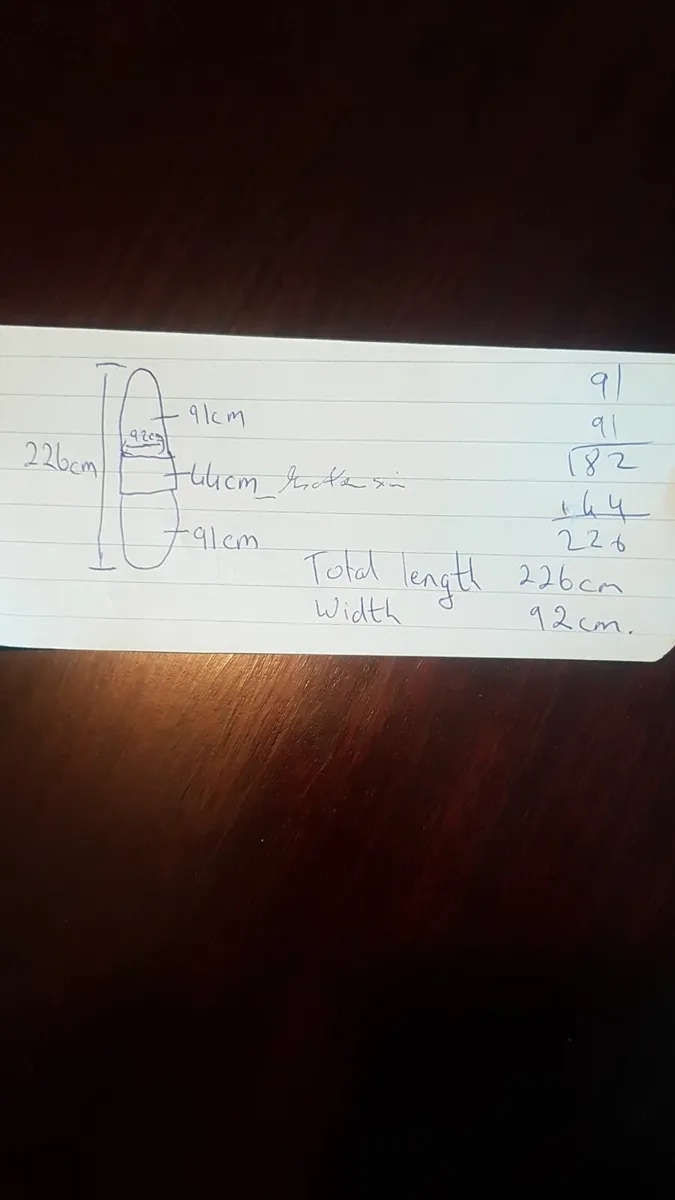 91
91cm
91
92cm
182
226cm
44cm_
44
91cm
226
Total length 226cm
Width 92cm.